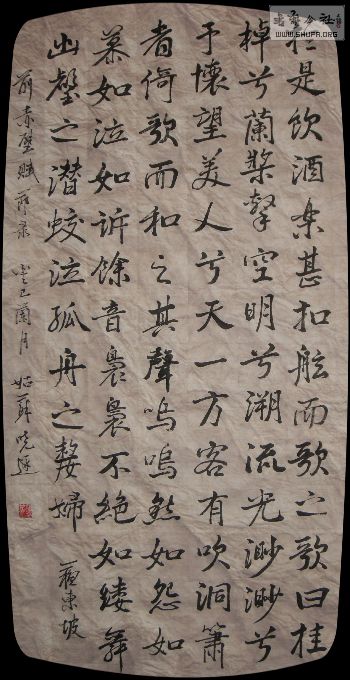 書艺公社
WWW.SHUFA.ORG
於是飲酒樂甚扣舷而歌之歌曰桂
棹兮蘭槳擊空明兮溯流光渺渺兮
于懷望美人兮天一方客有吹洞簫
者倚歌而和之其聲嗚嗚然如怨如
慕如泣如訴餘音裊裊不絕如縷舞
幽壑之潛蛟泣孤舟之嫠婦
蘇東坡
前赤壁賦節录 癸巳蘭月 姑蘇曉